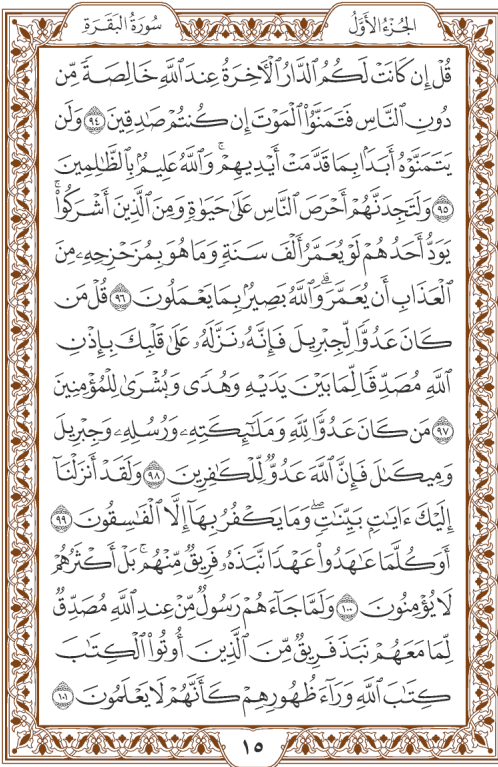 الجُزْءُ الأَوَّلُ
سُورَةُ البَقَرَةِ
قُلْ إِن كَانَتْ لَكُمُ ٱلدَّارُ ٱلْءَاخِرَةُ عِندَ ٱللَّهِ خَالِصَةً مِّن
دُونِ ٱلنَّاسِ فَتَمَنَّوُا۟ ٱلْمَوْتَ إِن كُنتُمْ صَٰدِقِينَ ٩٤ وَلَن
يَتَمَنَّوْهُ أَبَدًۢا بِمَا قَدَّمَتْ أَيْدِيهِمْ ۚ وَٱللَّهُ عَلِيمٌۢ بِٱلظَّٰلِمِينَ
٩٥ وَلَتَجِدَنَّهُمْ أَحْرَصَ ٱلنَّاسِ عَلَىٰ حَيَوٰةٍ وَمِنَ ٱلَّذِينَ أَشْرَكُوا۟ ۚ
يَوَدُّ أَحَدُهُمْ لَوْ يُعَمَّرُ أَلْفَ سَنَةٍ وَمَا هُوَ بِمُزَحْزِحِهِۦ مِنَ
ٱلْعَذَابِ أَن يُعَمَّرَ ۗ وَٱللَّهُ بَصِيرٌۢ بِمَا يَعْمَلُونَ ٩٦ قُلْ مَن
كَانَ عَدُوًّا لِّجِبْرِيلَ فَإِنَّهُۥ نَزَّلَهُۥ عَلَىٰ قَلْبِكَ بِإِذْنِ
ٱللَّهِ مُصَدِّقًا لِّمَا بَيْنَ يَدَيْهِ وَهُدًى وَبُشْرَىٰ لِلْمُؤْمِنِينَ
٩٧ مَن كَانَ عَدُوًّا لِّلَّهِ وَمَلَٰٓئِكَتِهِۦ وَرُسُلِهِۦ وَجِبْرِيلَ
وَمِيكَىٰلَ فَإِنَّ ٱللَّهَ عَدُوٌّ لِّلْكَٰفِرِينَ ٩٨ وَلَقَدْ أَنزَلْنَآ
إِلَيْكَ ءَايَٰتٍۭ بَيِّنَٰتٍ ۖ وَمَا يَكْفُرُ بِهَآ إِلَّا ٱلْفَٰسِقُونَ ٩٩
أَوَكُلَّمَا عَٰهَدُوا۟ عَهْدًا نَّبَذَهُۥ فَرِيقٌ مِّنْهُم ۚ بَلْ أَكْثَرُهُمْ
لَا يُؤْمِنُونَ ١٠٠ وَلَمَّا جَآءَهُمْ رَسُولٌ مِّنْ عِندِ ٱللَّهِ مُصَدِّقٌ
لِّمَا مَعَهُمْ نَبَذَ فَرِيقٌ مِّنَ ٱلَّذِينَ أُوتُوا۟ ٱلْكِتَٰبَ
كِتَٰبَ ٱللَّهِ وَرَآءَ ظُهُورِهِمْ كَأَنَّهُمْ لَا يَعْلَمُونَ ١٠١
١٥